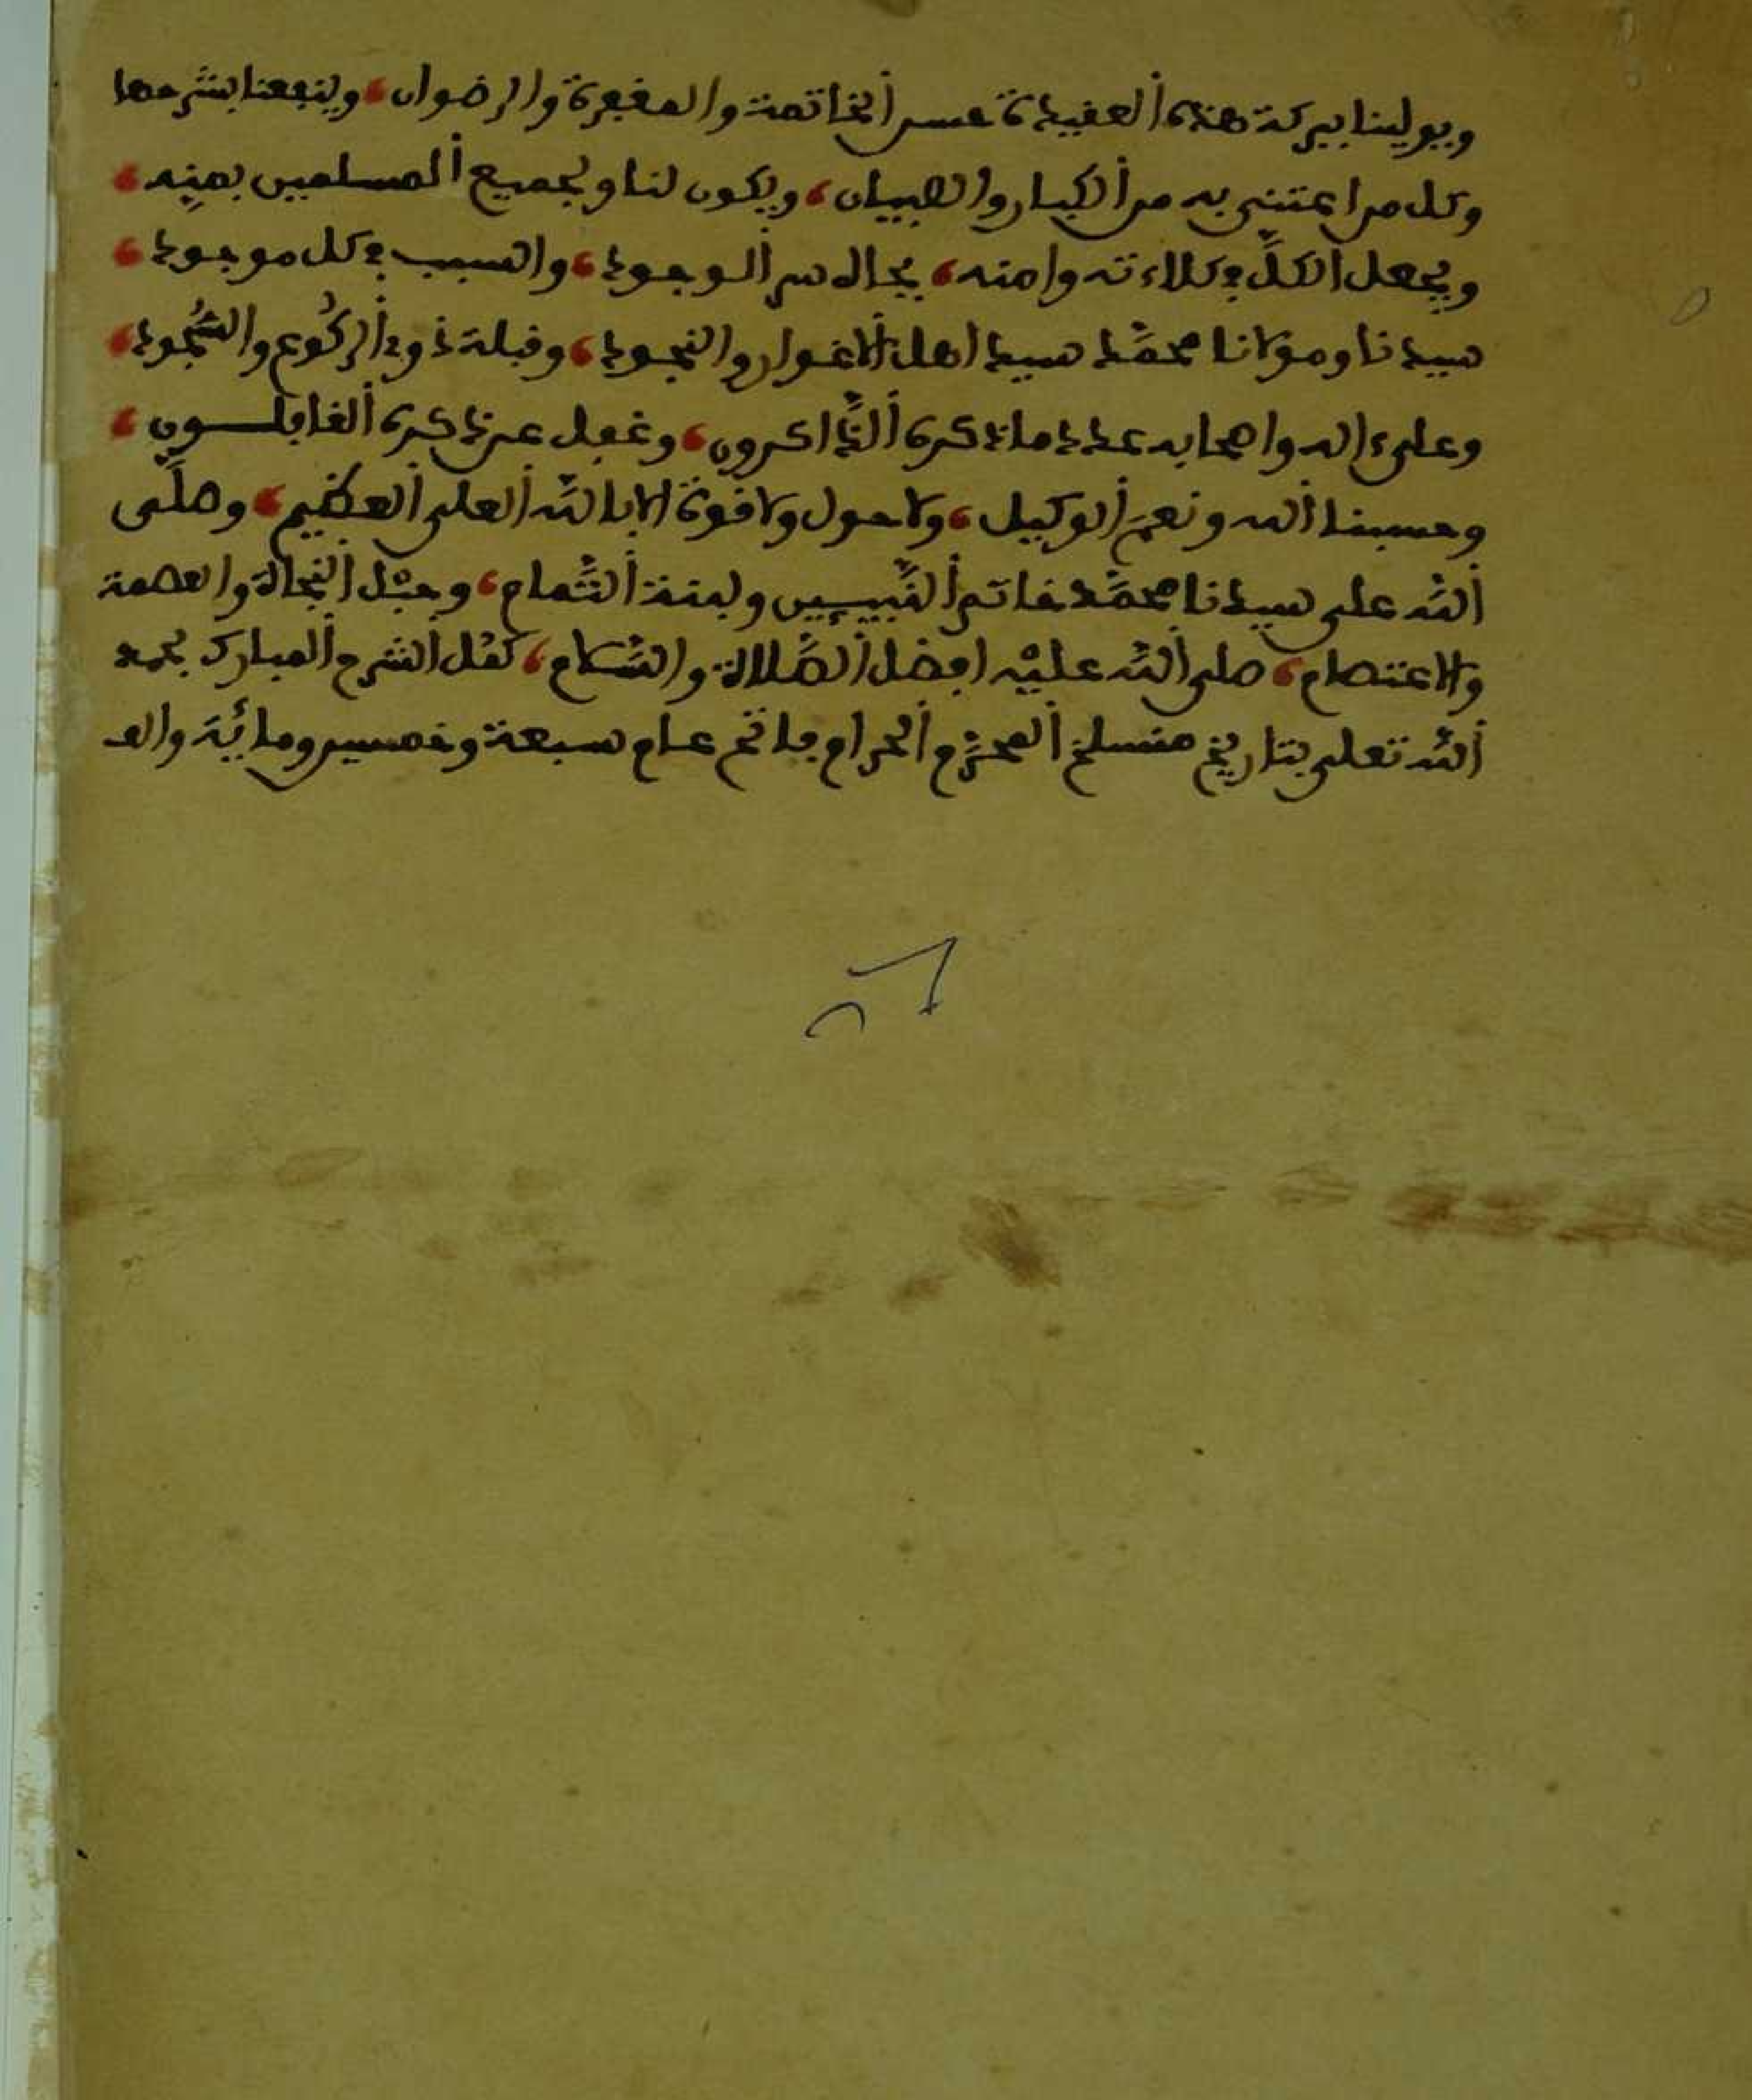 ويولينا ببركة هذه العقيدة حسن الخاتمة والمغفرة والرضوان، وينفعنا بشرحها
وكل من اعتنى به من الكبار والصبيان، ويكون لنا ولجميع المسلمين بمنه،
ويجعل الكلّ في كلاءته وامنه، بجاه سر الوجود، والسبب في كل موجود،
سيدنا ومولانا محمّد سيد اهل الاغوار والنجود، وقبلة ذوي الركُوع والسُّجود،
وعلىء اله واصحابه عدد ما ذكره الذّاكرون، وغفل عن ذكره الغافلــون،
وحسبنا الله ونعمَ الوكيل، ولا حول ولا قوة الا بالله العلي العظيم، وصلّى
اللّه على سيدنا محمّد خاتم النّبيـين ولبنة التّمام، وحبْل النّجاة والعصمة
والاعتصام، صلى اللّه عليْه افضل الصّلاة والسّلام، كمُل الشرح المبارك بحمد
اللّه تعلى بتاريخ منسلخ المحرّم الحرام فاتح عام سبعة وخمسين ومائة والف